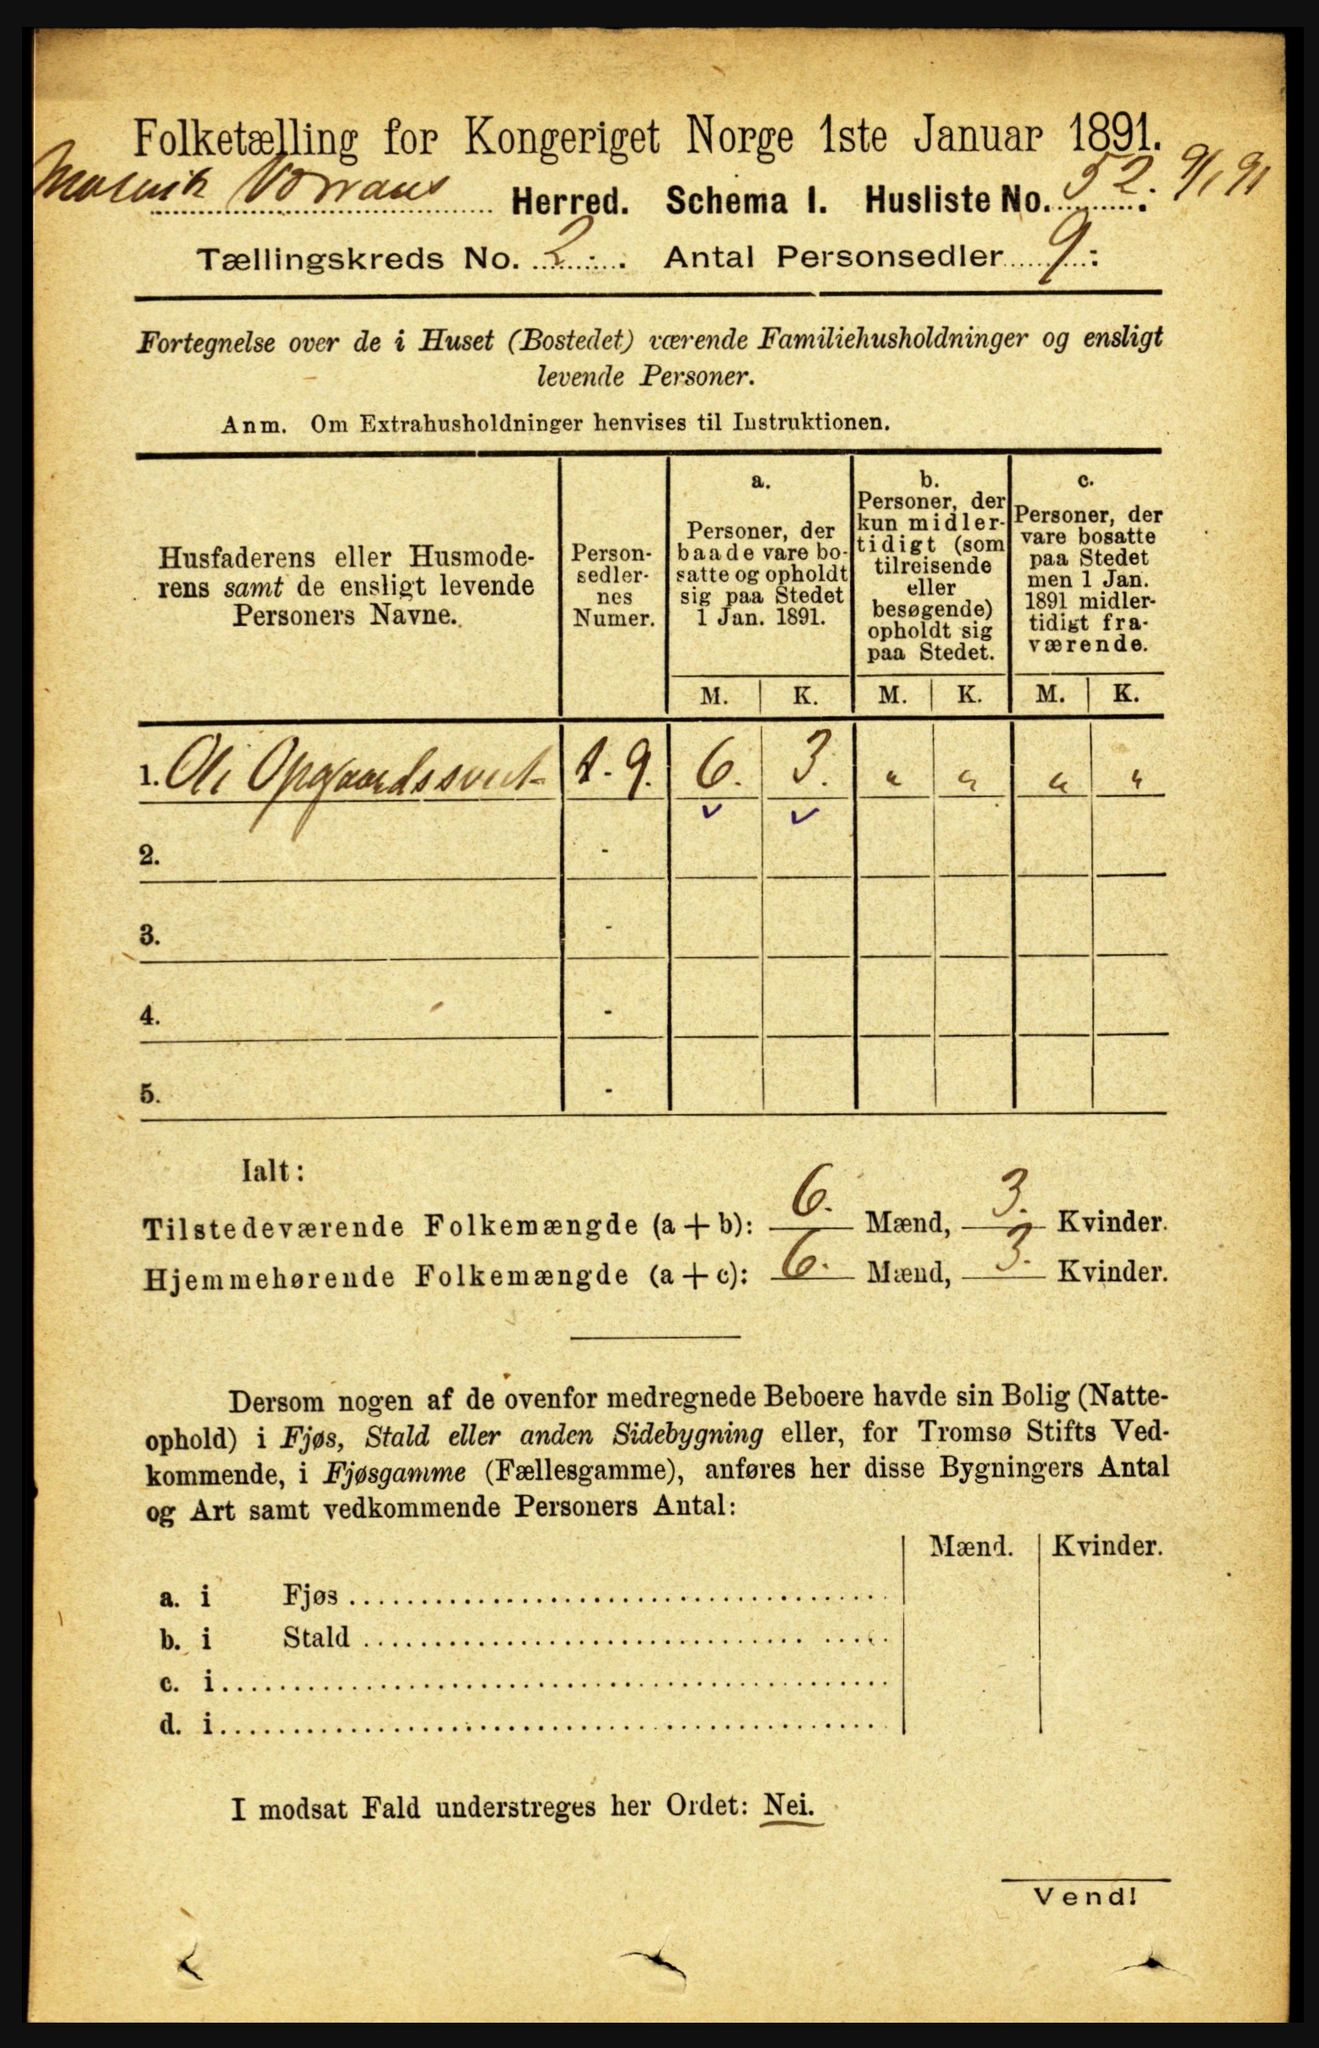 Folketælling for Kongeriget Norge 1ste Januar 1891.
Herred. Schema I. Husliste No. 52. 9/1 91
Tællingskreds No. 2. Antal Personsedler 9.
Fortegnelse over de i Huset (Bostedet) værende Familiehusholdninger og ensligt
levende Personer.
Anm. Om Extrahusholdninger henvises til Instruktionen.
Husfaderens eller Husmode-
rens samt de ensligt levende
Personers Navne.
Person-
sedler-
nes
Numer.
a.
Personer, der
baade vare bo-
satte og opholdt
sig paa Stedet
1 Jan. 1891.
b.
Personer, der
kun midler-
tidigt (som
tilreisende
eller
besøgende)
opholdt sig
paa Stedet.
c.
Personer, der
vare bosatte
paa Stedet
men 1 Jan.
1891 midler-
tidigt fra-
værende.
M. K. M. K. M. K.
1. 1-9. 6. 3. " " " "
2. -
3. -
4. -
5. -
Ialt:
Tilstedeværende Folkemængde (a + b): 6. Mænd, 3. Kvinder.
Hjemmehørende Folkemængde (a + c): 6. Mænd, 3. Kvinder.
Dersom nogen af de ovenfor medregnede Beboere havde sin Bolig (Natte-
ophold) i Fjøs, Stald eller anden Sidebygning eller, for Tromsø Stifts Ved-
kommende, i Fjøsgamme (Fællesgamme), anføres her disse Bygningers Antal
og Art samt vedkommende Personers Antal:
Mænd. Kvinder.
a. i Fjøs
b. i Stald
c. i
d. i
I modsat Fald understreges her Ordet: Nei.
Vend!